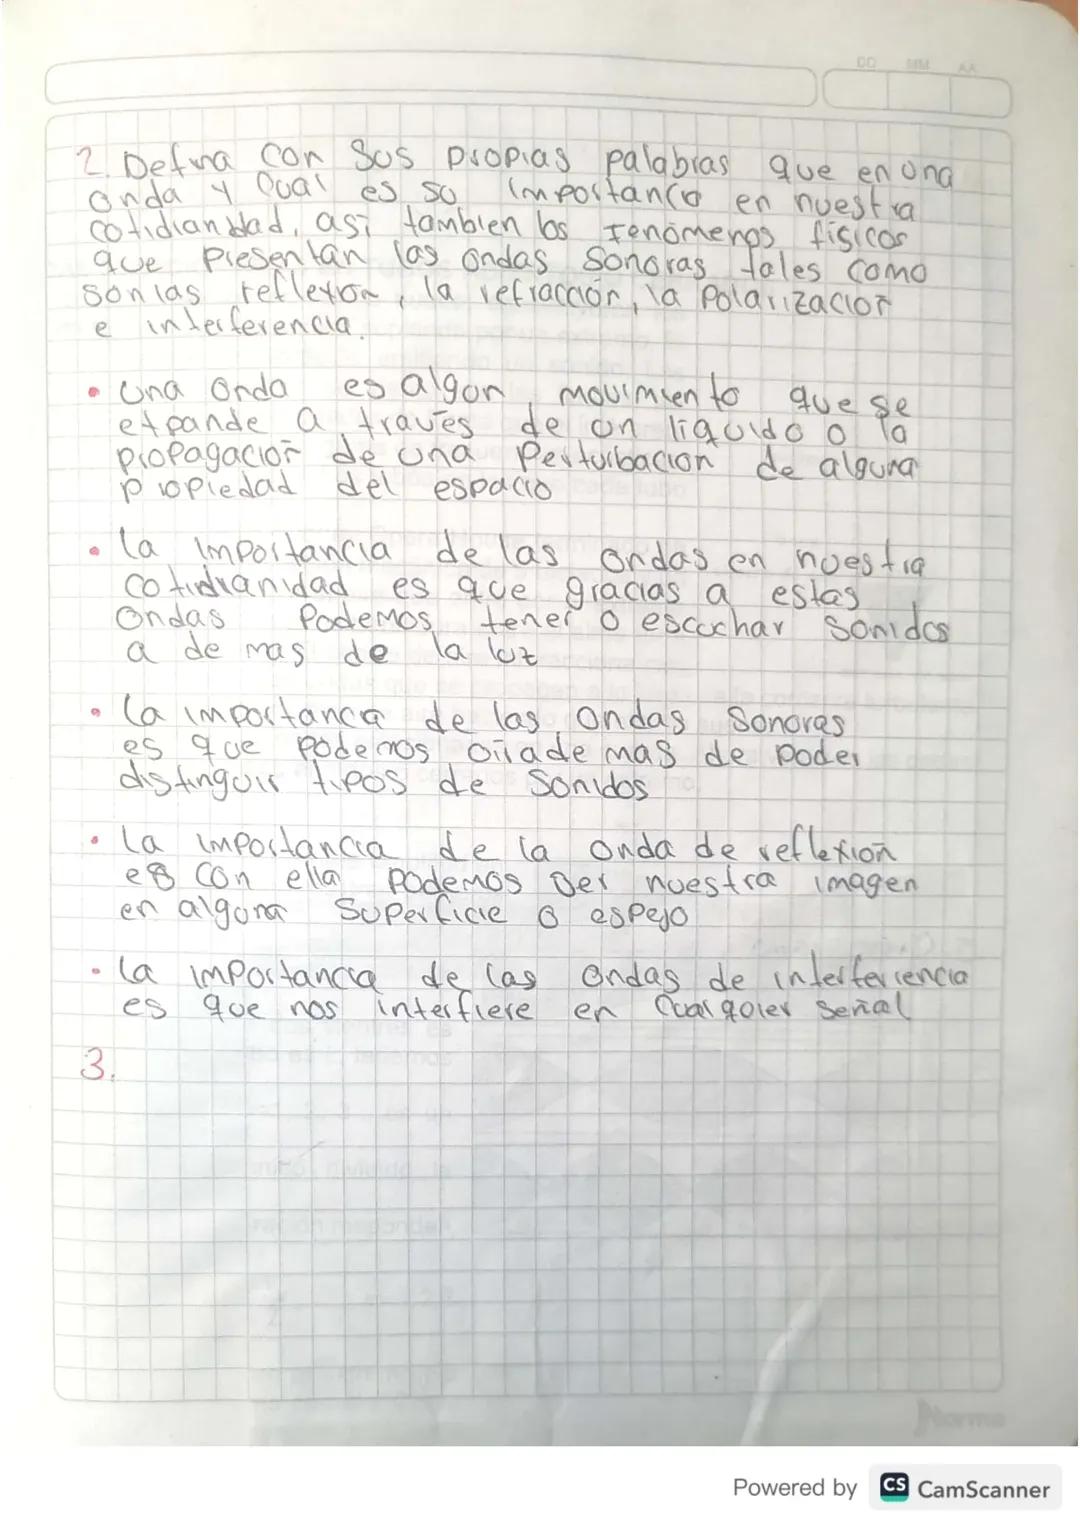 DD MM AA
2. Defina con sus propias palabras que en una
onda y cual es su importancia en nuestra
cotidianidad, así tambien los fenómenos físicos
que presentan las ondas sonoras tales como
son las reflexion, la refracción, la polarización
e interferencia.
• una onda es algun movimiento que se
expande a través de un liquido o la
propagación de una perturbacion de alguna
propiedad del espacio
• la importancia de las ondas en nuestra
cotidianidad es que gracias a estas
ondas podemos tener o escuchar sonidos
a de mas de la luz
• la importanca de las ondas sonoras
es que podemos oir a de mas de poder
distinguir tipos de sonidos
• la importancia de la onda de reflexión
es con ella podemos ver nuestra imagen
en alguna superficie o espejo
• la importancia de las ondas de interferiencia
es que nos interfiere en cualquier señal
3.
Norma
Powered by CS CamScanner